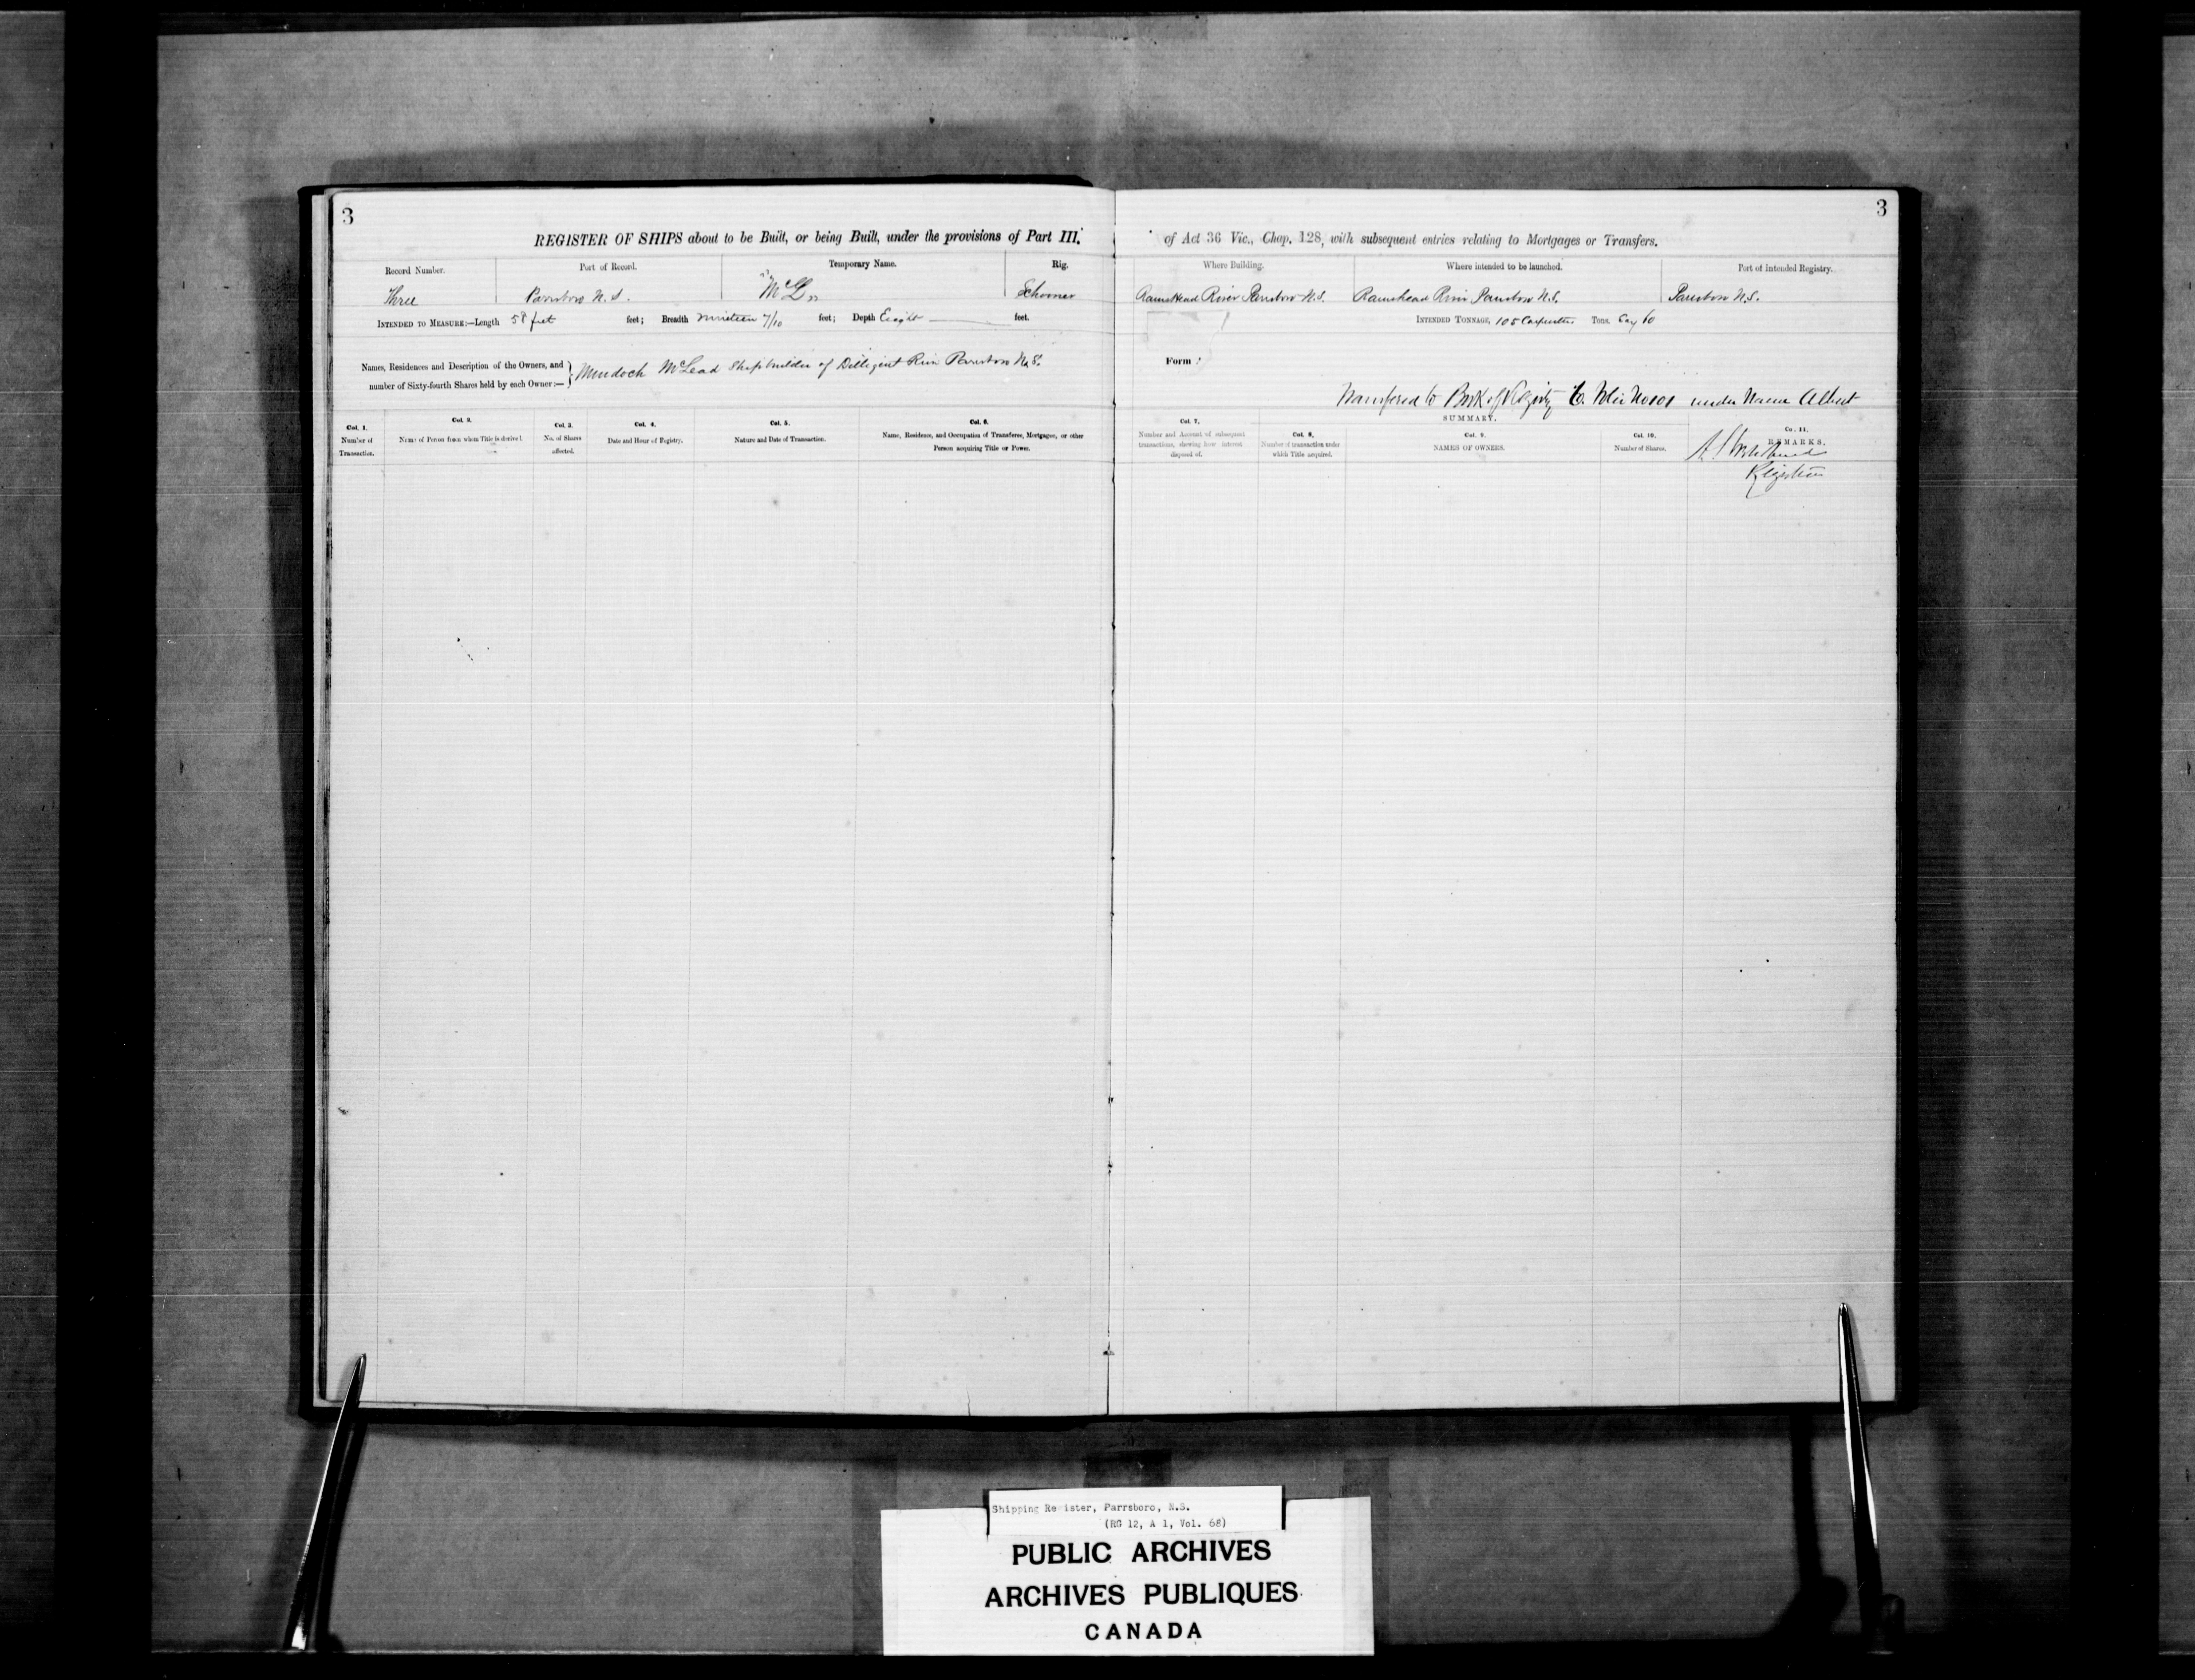 3
3
REGISTER OF SHIPS about to be Built, or being Built, under the provisions of Part III. of Act 36 Vic., Chap. 128, with subsequent entries relating to Mortgages or Transfers.
Record Number. Port of Record. Temporary Name. Rig. Where Building. Where intended to be launched. Port of Intended Registry.
Three Parrsboro N.S. "McL" Schooner Ramshead River Parrsboro N.S. Ramshead River Parrsboro N.S. Parrsboro N.S.
INTENDED TO MEASURE:—Length 58 feet feet; Breadth nineteen 7/10 feet; Depth Eight feet. INTENDED TONNAGE, 105 Carpenters Tons. Say 60
Names, Residences and Description of the Owners, and
number of Sixty-fourth Shares held by each Owner:—
Murdoch McLead Shipbuilder of Dilligent River Parrsboro N.S.
Form
Transfered to Book of Registry under Name Albert
SUMMARY.
Col. 1. Number of Transaction.
Col. 2. Name of Person from whom Title is derived.
Col. 3. No. of Shares affected.
Col. 4. Date and Hour of Registry.
Col. 5. Nature and Date of Transaction.
Col. 6. Name, Residence, and Occupation of Transferee, Mortgagee, or other Person acquiring Title or Power.
Col. 7. Number and Account of subsequent transactions, shewing how interest disposed of.
Col. 8. Number of transaction under which Title acquired.
Col. 9. NAMES OF OWNERS.
Col. 10. Number of Shares.
Co. 11. REMARKS.
Shipping Re ister, Parrsboro, N.S.
(RG 12, A 1, Vol. 68)
PUBLIC ARCHIVES
ARCHIVES PUBLIQUES
CANADA